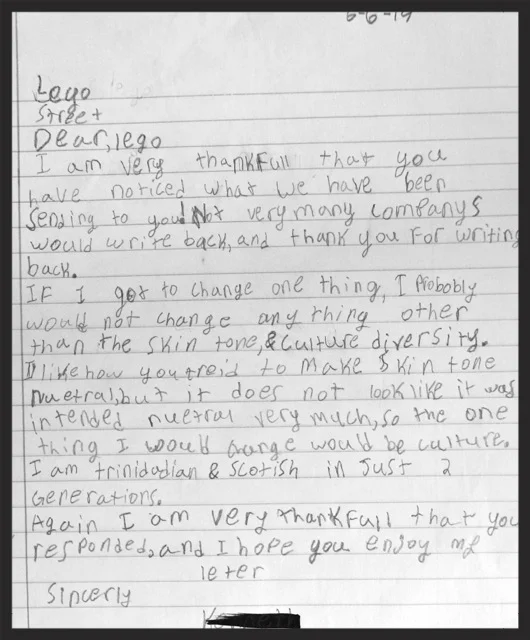 6-6-19
Lego
Street
Dear, lego
I am very thankfull that you
have noticed what we have been
Sending to you! Not very many companys
would write back, and thank you For writing
back.
IF I got to change one thing, I Probobly
would not change any thing other
than the skin tone, & culture diversity.
I like how you treid to make skin tone
nuetral, but it does not look like it was
intended nuetral very much, so the one
thing I would change would be culture.
I am trinidadian & Scotish in Just 2
Generations.
Again I am very thankfull that you
responded, and I hope you enjoy my
leter
Sincerly